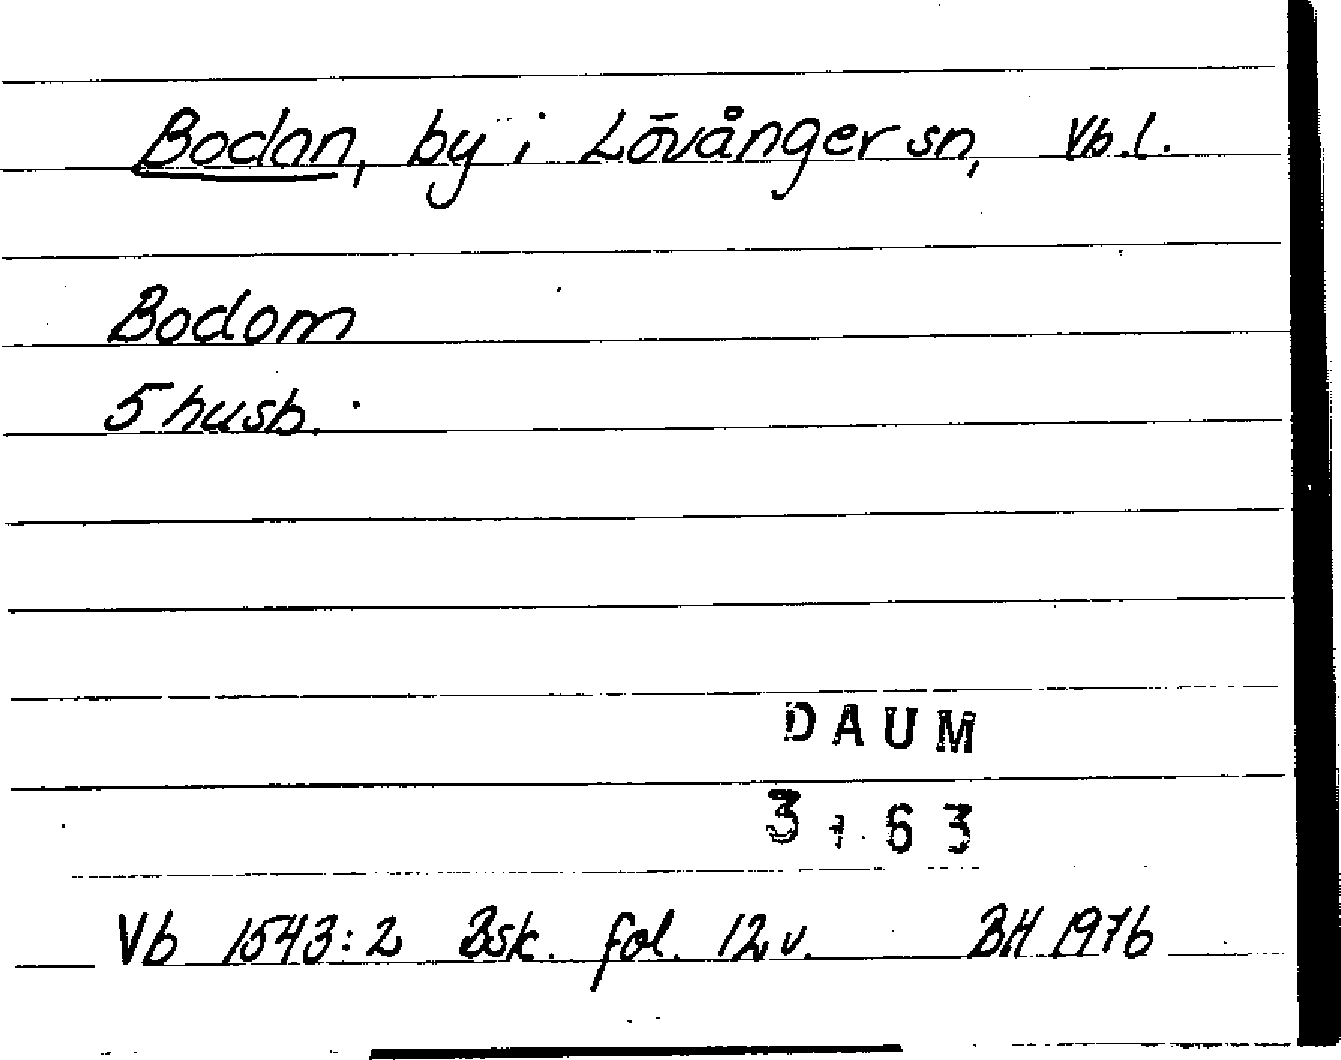 Bodan, by i Lövånger sn, Vb.l.
Bodom
5 husb.
DAUM
3163
Vb 1543:2 Bsk. fol. 12 v. BH 1976